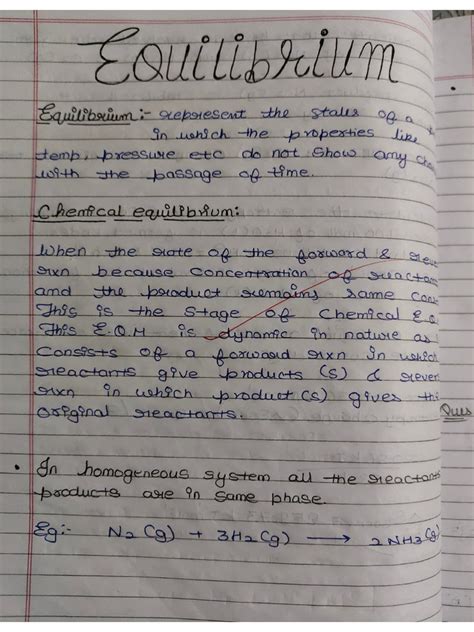 Equilibrium
Equilibrium:- represent the states of a
in which the properties like
temp, pressure etc do not show any
with the passage of time.
Chemical equilibrium:
When the rate of the forward &
rxn because concentration of
and the product remains same
This is the stage of chemical E.Q.
This E.Q.M is dynamic in nature as
consists of a forward rxn in which
reactants give products (s) &
rxn in which product (s) gives
original reactants.
Ques
• In homogeneous system all the
products are in same phase.
Eg:- N2 (g) + 3H2 (g) ⟶ 2NH3 (g)